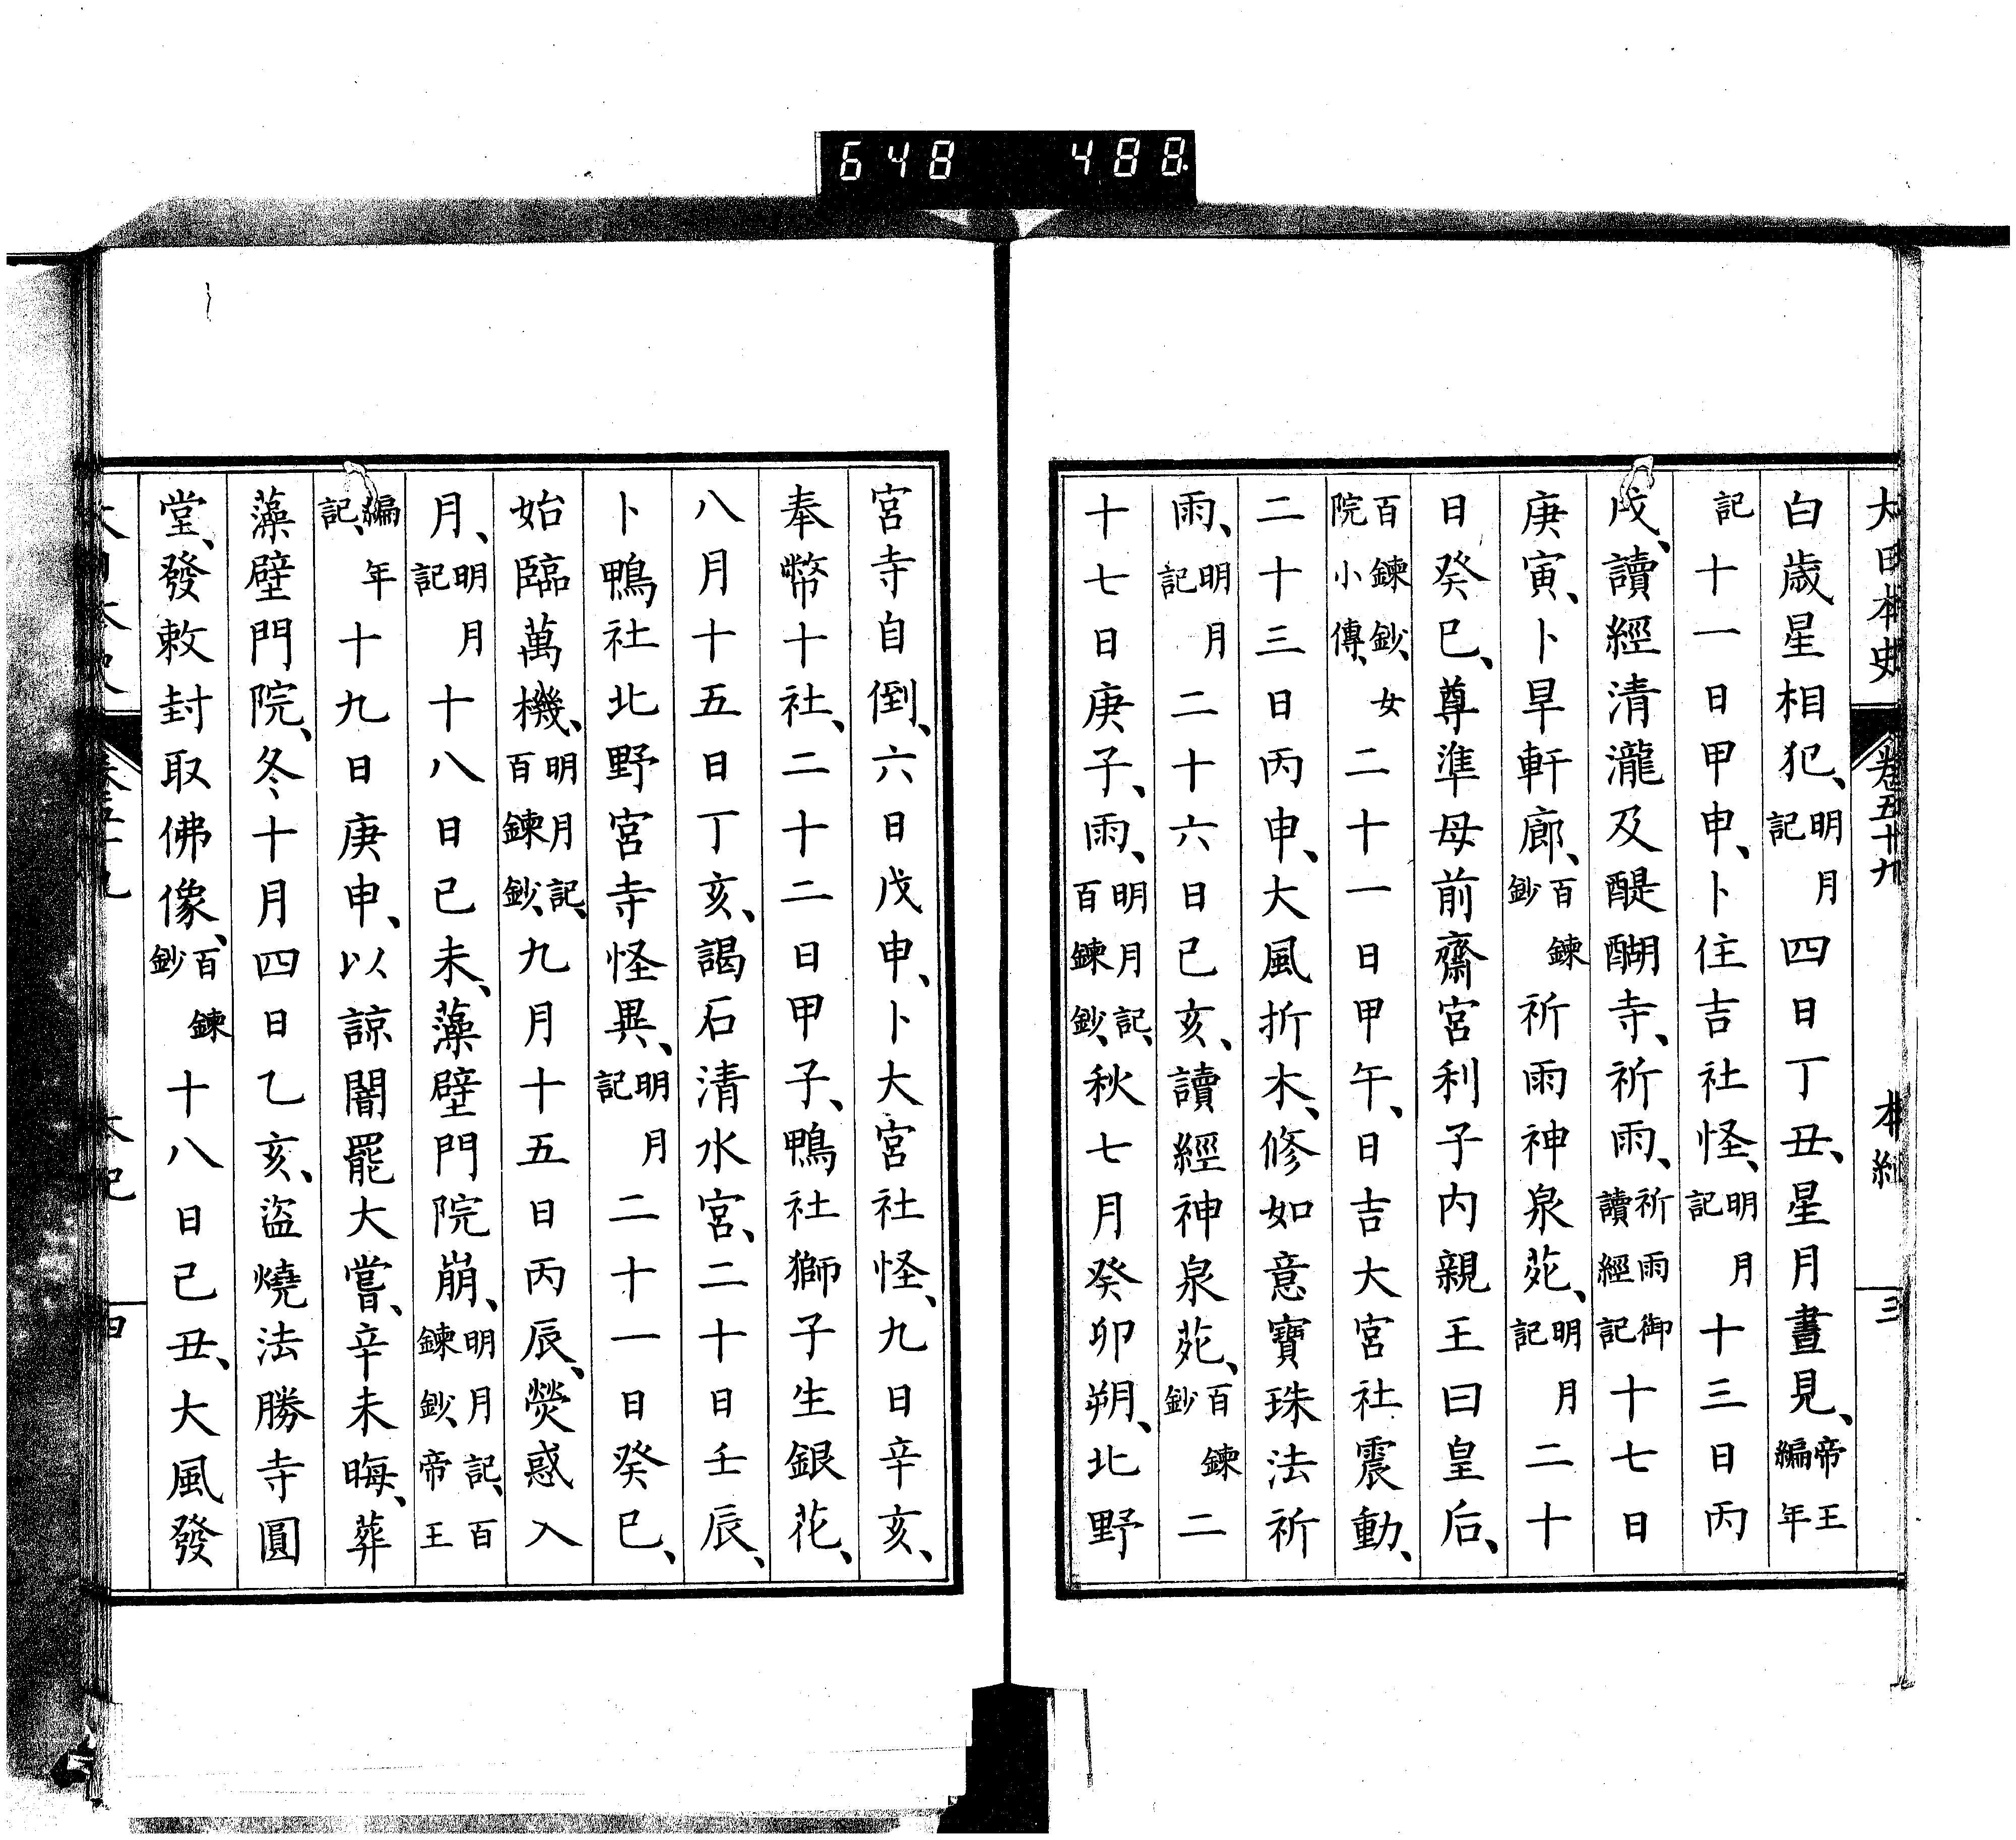 648 488
大日本史 卷五十九 本紀 三
白歲星相犯、明月記四日丁丑、星月晝見、帝王編年
記十一日甲申、卜住吉社怪、明月記十三日丙
戌、讀經清瀧及醍醐寺、祈雨、祈雨御讀經記十七日
庚寅、卜旱軒廊、百鍊鈔祈雨神泉苑、明月記二十
日癸巳、尊準母前齋宮利子內親王曰皇后、
百鍊鈔、女院小傳、二十一日甲午、日吉大宮社震動、
二十三日丙申、大風折木、修如意寶珠法祈
雨、明月記二十六日己亥、讀經神泉苑、百鍊鈔二
十七日庚子、雨、明月記、百鍊鈔、秋七月癸卯朔、北野
宮寺自倒、六日戊申、卜大宮社怪、九日辛亥、
奉幣十社、二十二日甲子、鴨社獅子生銀花、
八月十五日丁亥、謁石清水宮、二十日壬辰、
卜鴨社北野宮寺怪異、明月記二十一日癸巳、
始臨萬機、明月記、百鍊鈔、九月十五日丙辰、熒惑入
月、明月記十八日己未、藻壁門院崩、明月記、百鍊鈔、帝王
編年記、十九日庚申、以諒闇罷大嘗、辛未晦、葬
藻壁門院、冬十月四日乙亥、盜燒法勝寺圓
堂、發敕封取佛像、百鍊鈔十八日己丑、大風發